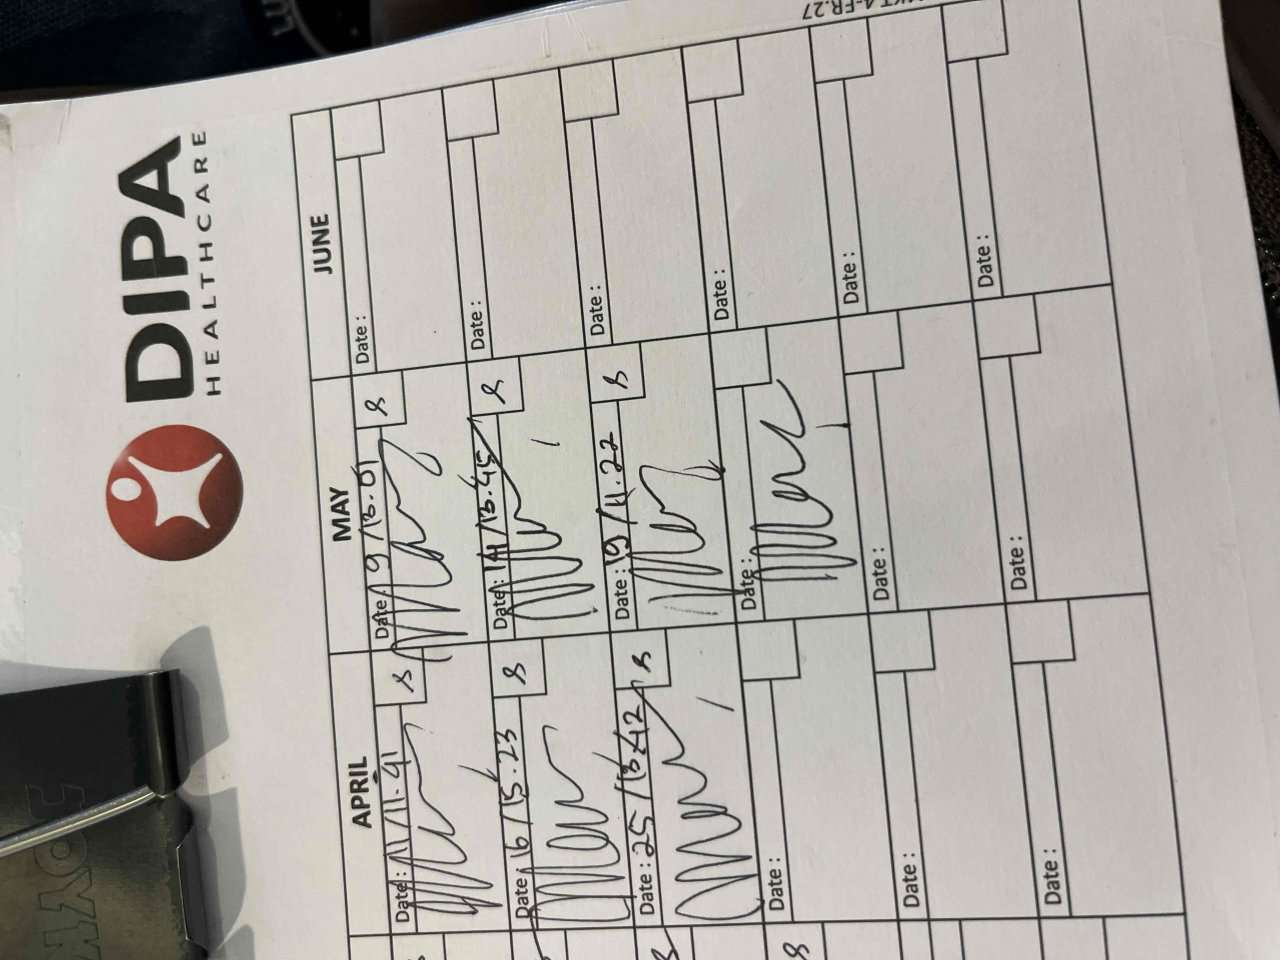 MKT.4-FR.27
DIPA
HEALTHCARE
APRIL MAY JUNE
Date: 11/11.41 S Date: 9/13.01 S Date :
Date: 16/15.23 S Date: 14/13.45 S Date :
Date: 25/13.42 S Date: 19/11.22 S Date :
Date : Date: Date :
Date : Date : Date :
Date : Date : Date :